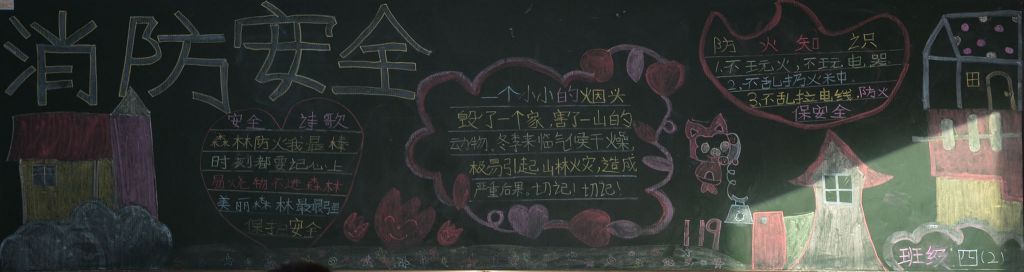 消防安全
安全 诗歌
森林防火我最棒
时刻都要记心上
易烧物不进森林
美丽森林最最强
保护安全
一个小小的烟头
毁了一个家,害了一山的
动物。冬季来临气候干燥,
极易引起山林火灾,造成
严重后果,切记!切记!
防火知识
1.不玩火,不玩电器
2.不乱扔火种.
3.不乱接电线,防火
保安全
119
班级:四(2)